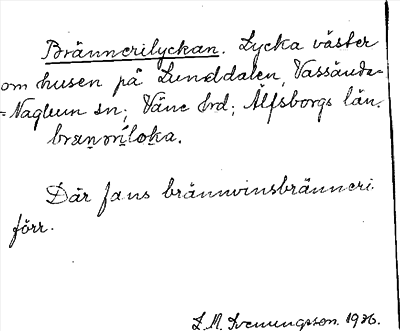 Brännerilyckan. Lycka väster
om husen på Lunddalen, Vassända-
=Naglum sn; Väne hrd; Älfsborgs län.
bran̥əríloka.
Där fans brännvinsbränneri
förr.
L. M. Svenungsson. 1926.